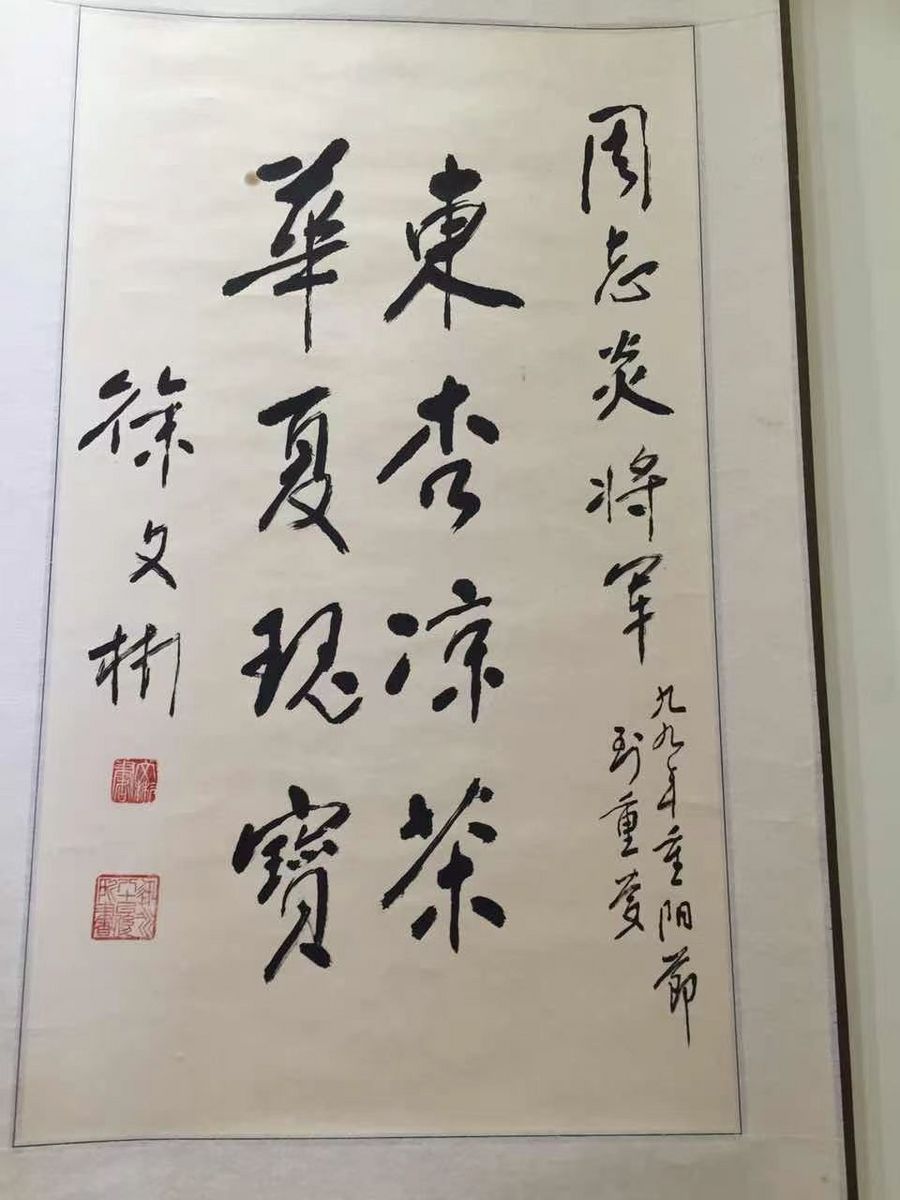 周志炎将军
九九年重阳節
到重慶
東杏凉茶
華夏瑰寶
徐文彬